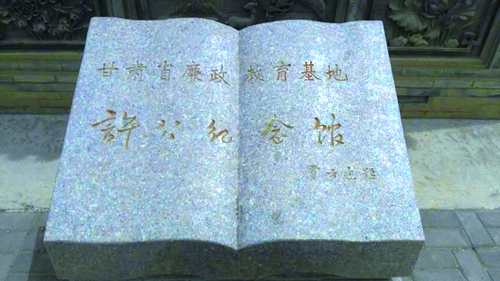 甘肃省廉政教育基地
許公纪念馆